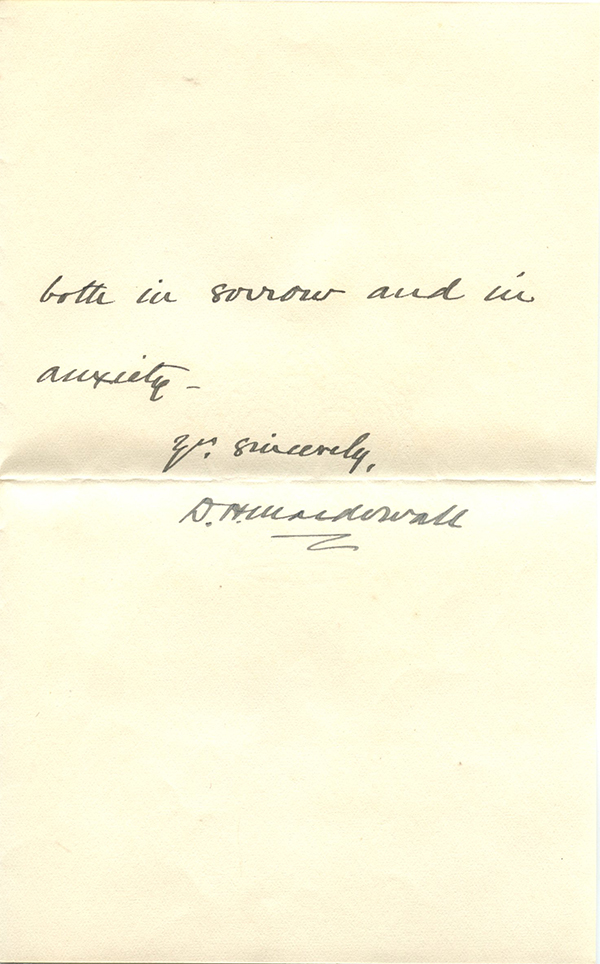 both in sorrow and in
anxiety –
Yrs. sincerely,
D. H. Macdowall